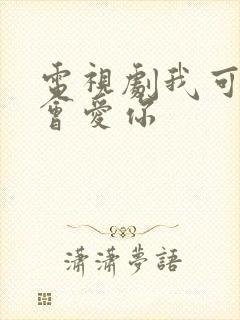 電視劇我可
會愛你
瀟瀟夢語